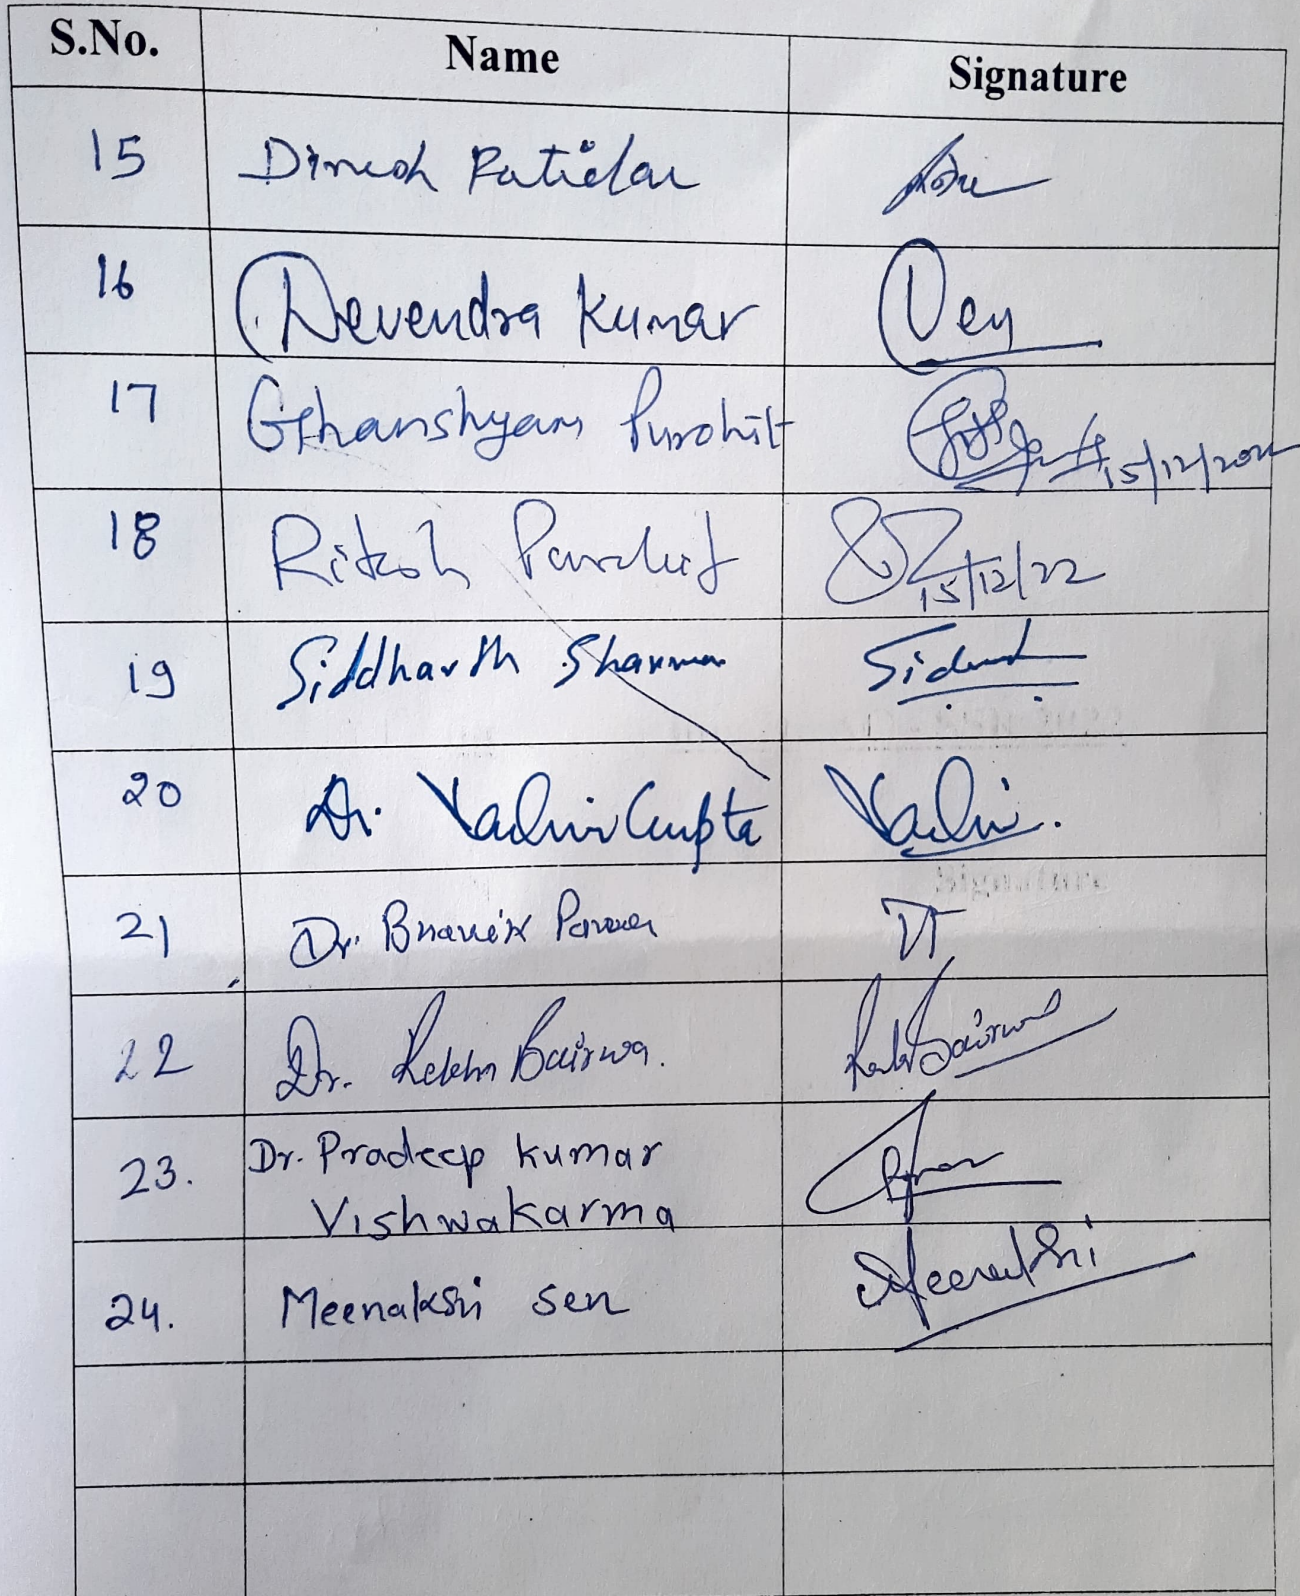 S.No. Name Signature
15 Dinesh Patidar
16 Devendra Kumar Dev
17 Gehanshyam Purohit 15/12/2022
18 Ritesh Purohit 15/12/22
19 Siddharth Sharma Sid
20 Dr. Gupta
21 Dr. Bhavik
22 Dr. Rekha Bairwa. Bairwa
23. Dr. Pradeep Kumar
Vishwakarma
24. Meenakshi Sen Meenakshi